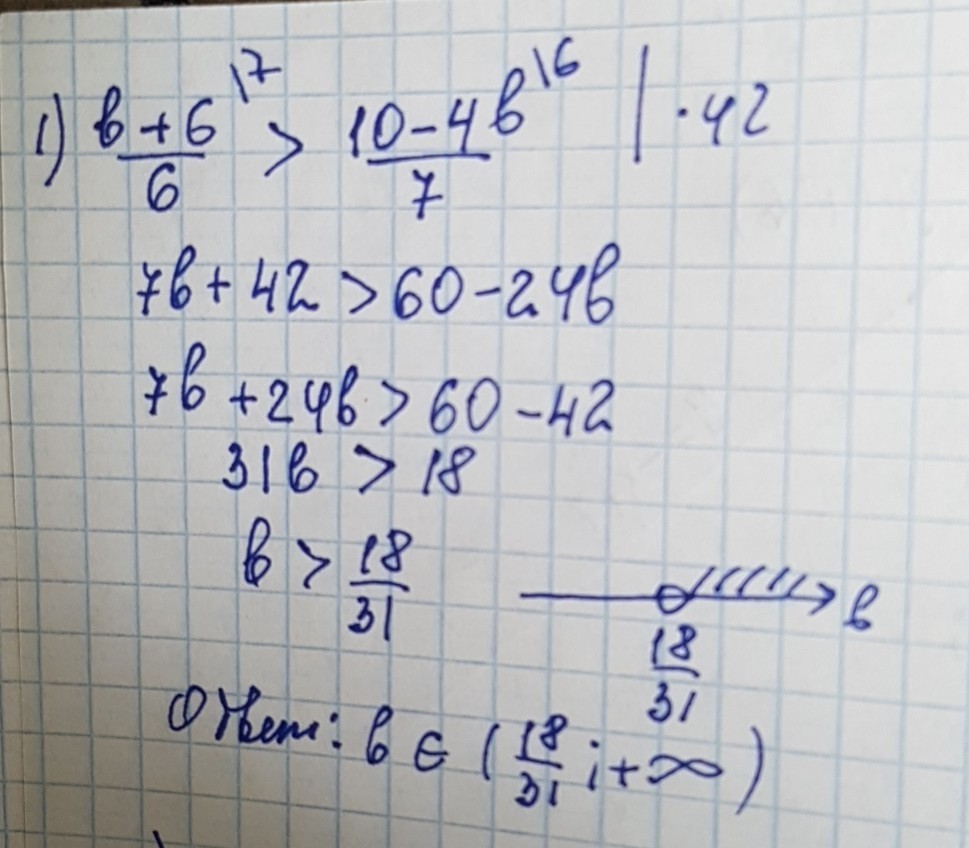 1) (в+6)/6 \7 > (10-4в)/7 \6 | ·42
7в+42>60-24в
7в+24в>60-42
31в>18
в>18/31
в
18/31
Ответ: в∈(18/31;+∞)